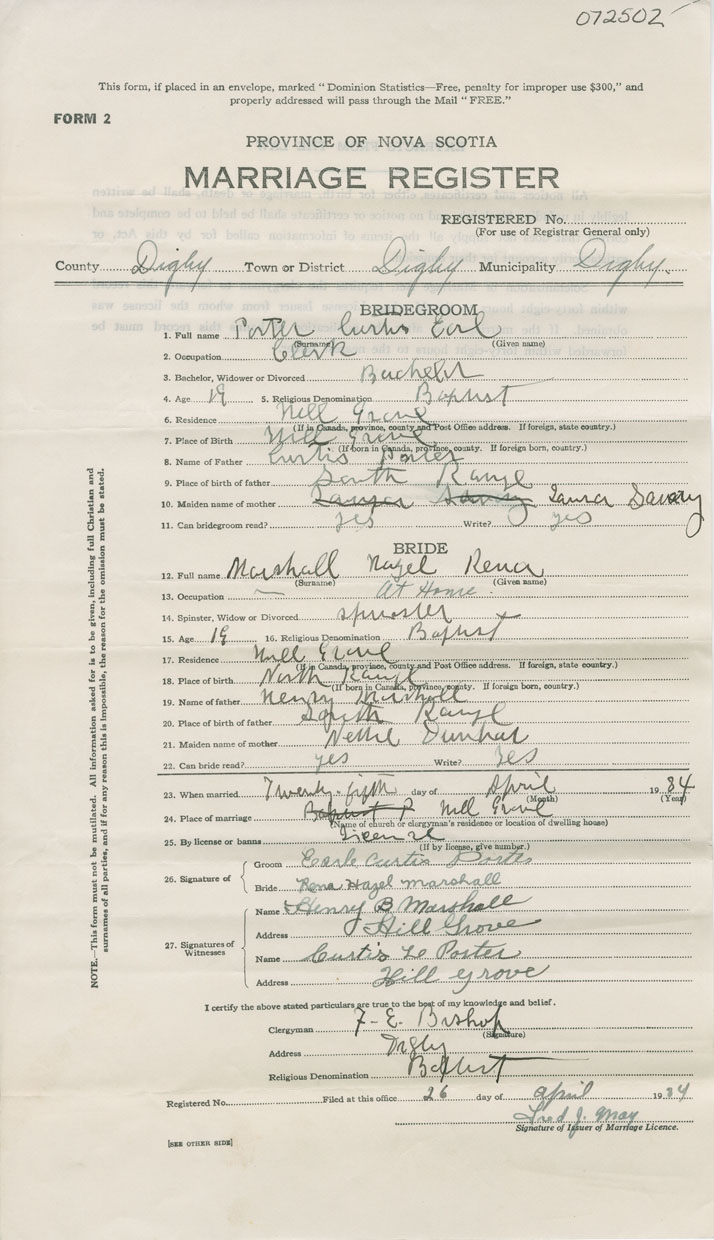 072502
This form, if placed in an envelope, marked "Dominion Statistics—Free, penalty for improper use $300," and
properly addressed will pass through the Mail "FREE."
FORM 2
PROVINCE OF NOVA SCOTIA
MARRIAGE REGISTER
REGISTERED No.
(For use of Registrar General only)
County Digby Town or District Digby Municipality Digby
BRIDEGROOM
1. Full name Porter Curtis Earl
(Surname) (Given name)
2. Occupation Clerk
3. Bachelor, Widower or Divorced Bachelor
4. Age 19 5. Religious Denomination Baptist
6. Residence Hill Grove
(If in Canada, province, county and Post Office address. If foreign, state country.)
7. Place of Birth Hill Grove
(If born in Canada, province, county. If foreign born, country.)
8. Name of Father Curtis Porter
9. Place of birth of father South Range
10. Maiden name of mother Laura Savary
11. Can bridegroom read? yes Write? yes
BRIDE
12. Full name Marshall Hazel Rena
(Surname) (Given name)
13. Occupation — At Home
14. Spinster, Widow or Divorced spinster
15. Age 19 16. Religious Denomination Baptist
17. Residence Hill Grove
(If in Canada, province, county and Post Office address. If foreign, state country.)
18. Place of birth North Range
(If born in Canada, province, county. If foreign born, country.)
19. Name of father Henry Marshall
20. Place of birth of father South Range
21. Maiden name of mother Nettie Dunbar
22. Can bride read? yes Write? Yes
23. When married Twenty-fifth day of April 1934
(Month) (Year)
24. Place of marriage Hill Grove
(Name of church or clergyman's residence or location of dwelling house)
25. By license or banns License
(If by license, give number.)
26. Signature of
Groom Earle Curtis Porter
Bride Rena Hazel Marshall
27. Signatures of Witnesses
Name Henry B Marshall
Address Hill Grove
Name Curtis Le Porter
Address Hill Grove
I certify the above stated particulars are true to the best of my knowledge and belief.
Clergyman F. E. Bishop
(Signature)
Address Digby
Religious Denomination Baptist
Registered No. Filed at this office 26 day of April 1934
Fred J. May
Signature of Issuer of Marriage Licence.
[SEE OTHER SIDE]
NOTE.—This form must not be mutilated. All information asked for is to be given, including full Christian and
surnames of all parties, and if for any reason this is impossible, the reason for the omission must be stated.